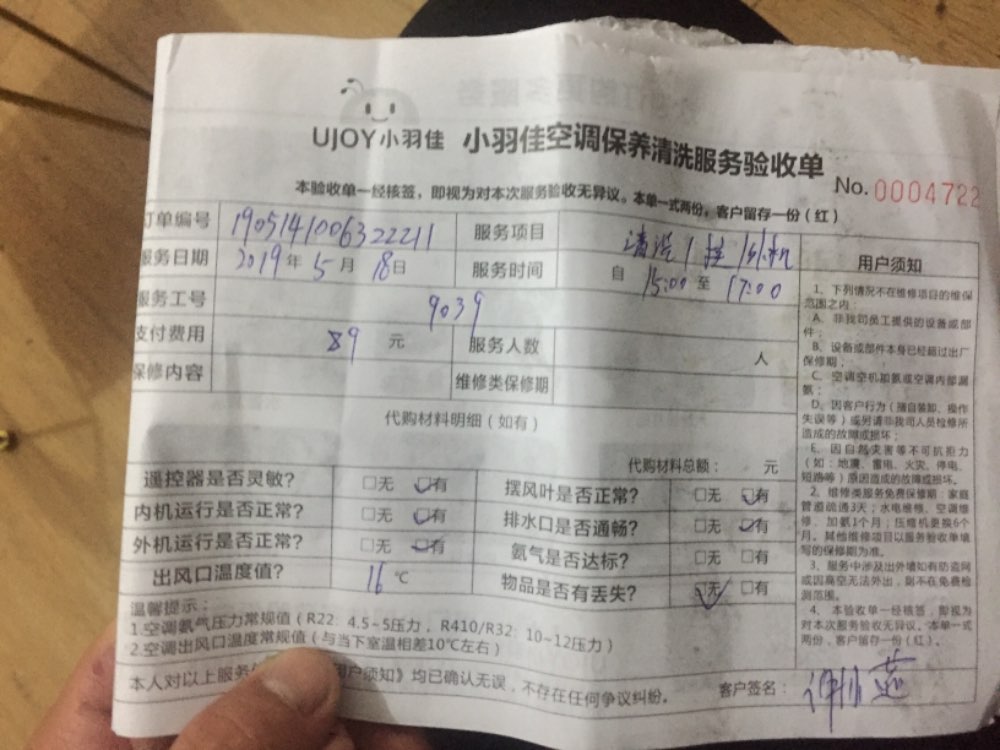 UJOY小羽佳 小羽佳空调保养清洗服务验收单
No.0004722
本验收单一经核签，即视为对本次服务验收无异议。本单一式两份，客户留存一份（红）
订单编号 190514100632221​1 服务项目 清洗1挂 外机
服务日期 2019年5月18日 服务时间 自15:00至17:00
服务工号 9039
支付费用 89 元 服务人数 人
保修内容 维修类保修期
代购材料明细（如有）
代购材料总额： 元
遥控器是否灵敏? □无 □有 摆风叶是否正常? □无 □有
内机运行是否正常? □无 □有 排水口是否通畅? □无 □有
外机运行是否正常? □无 □有 氨气是否达标? □无 □有
出风口温度值? 16 ℃ 物品是否有丢失? □无 □有
温馨提示：
1.空调氨气压力常规值（R22：4.5~5压力，R410/R32：10~12压力）
2.空调出风口温度常规值（与当下室温相差10℃左右）
本人对以上服务 用户须知》均已确认无误，不存在任何争议纠纷。
客户签名：
用户须知
1、下列情况不在维修项目的维保
范围之内：
A、非我司员工提供的设备或部
件；
B、设备或部件本身已经超过出厂
保修期；
C、空调空机加氨或空调内部漏
氨；
D、因客户行为（擅自装卸、操作
失误等）或另请非我司人员检修所
造成的故障或损坏；
E、因自然灾害等不可抗拒力
（如：地震、雷电、火灾、停电、
短路等）原因造成的故障或损坏。
2、维修类服务免费保修期：家庭
管道疏通3天；水电维修、空调维
修、加氨1个月；压缩机更换6个
月。其他维修项目以服务验收单填
写的保修期为准。
3、服务中涉及出外墙如有防盗网
或因高空无法外出，则不在免费检
测范围。
4、本验收单一经核签，即视为
对本次服务验收无异议。本单一式
两份，客户留存一份（红）。